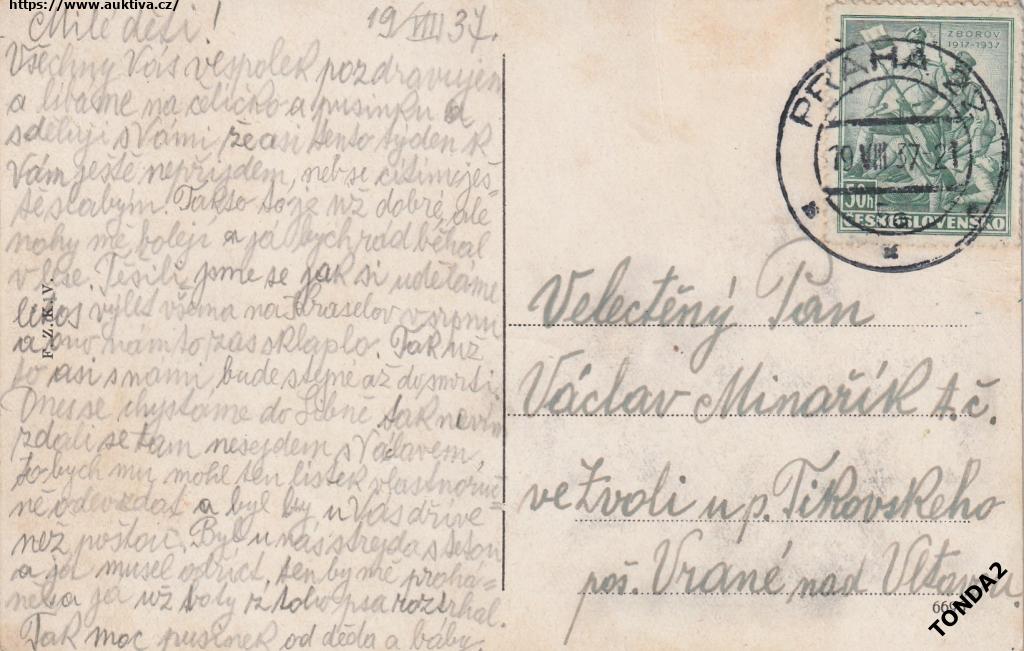 https://www.auktiva.cz/
Milé děti! 19/VIII 37.
Všechny Vás vespolek pozdravujem
a líbáme na čelíčko a pusinku a
sděluji s Vámi, že asi tento týden k
Vám ještě nepřijdem, neb se cítím ješ-
tě slabým. Takto to je už dobré, ale
nohy mě bolejí a já bych rád běhal
v lese. Těšili jsme se jak si uděláme
letos výlet všema na v srpnu
a ono nám to zas sklaplo. Tak už
to asi s námi bude stejně až do smrti.
Dnes se chystáme do Libně tak nevím
zdali se tam nesejdem s Václavem,
bych mu mohl ten lístek vlastnoruč-
ně odevzdat a byl by u Vás dříve
než poštou. Byl u nás strejda s tetou
a já musel odříct, ten by mě prohá-
něl a já už boty z toho psa roztrhal.
Tak moc pusinek od děda a báby.
F. Ž. K. V.
ZBOROV
1917-1937
50h
ČESKOSLOVENSKO
PRAHA 22
19.VIII.37.21
Velectěný Pan
Václav Minařík t.č.
ve Zvoli u p. Tikovského
poš. Vrané nad Vltavou
TONDA2